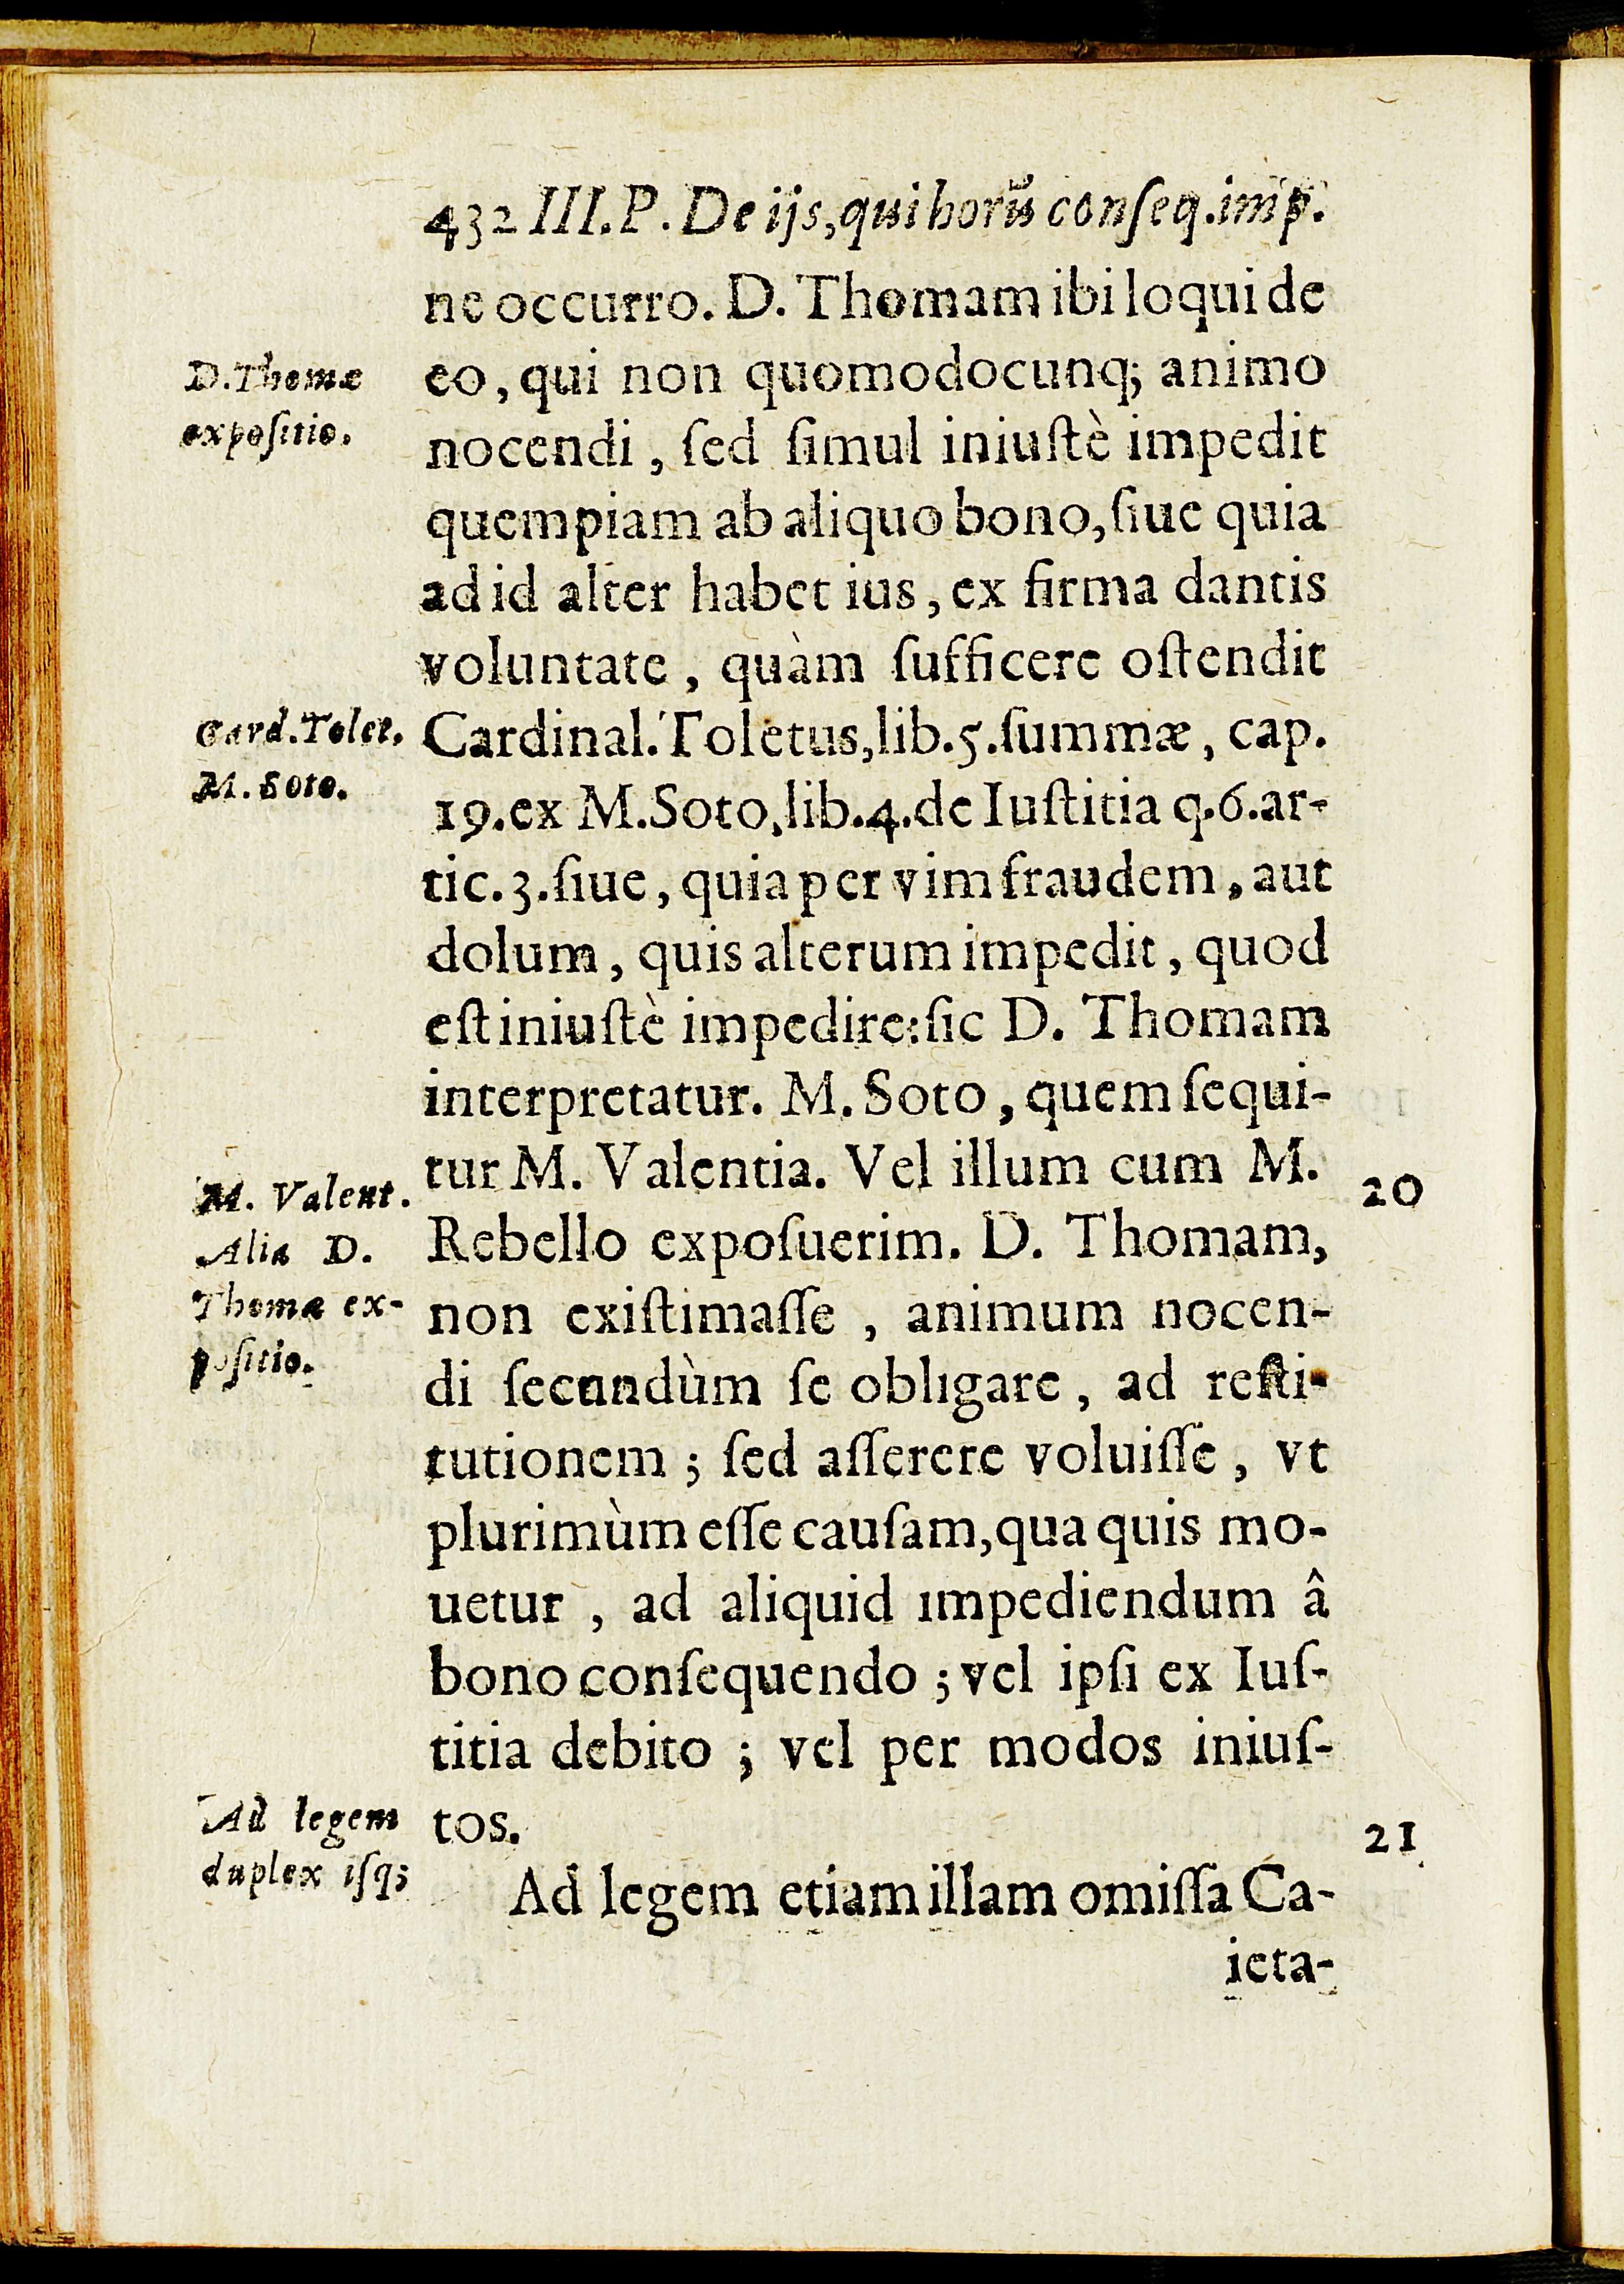 432 III.P. De ijs, qui horũ conſeq.imp.
ne occurro. D. Thomam ibi loqui de
D.Thomæ
expoſitio.
eo, qui non quomodocunq; animo
nocendi, ſed ſimul iniuſtè impedit
quempiam ab aliquo bono, ſiue quia
ad id alter habet ius, ex firma dantis
voluntate, quàm ſufficere oſtendit
Card.Tolet.
M. Soto.
Cardinal. Toletus, lib.5.ſummæ, cap.
19.ex M.Soto, lib.4.de Iuſtitia q.6.ar-
tic.3.ſiue, quia per vim fraudem, aut
dolum, quis alterum impedit, quod
eſt iniuſtè impedire: ſic D. Thomam
interpretatur. M. Soto, quem ſequi-
tur M. Valentia. Vel illum cum M.
20
M. Valent.
Alia D.
Thomæ ex-
poſitio.
Rebello expoſuerim. D. Thomam,
non exiſtimaſſe, animum nocen-
di ſecundùm ſe obligare, ad reſti-
tutionem; ſed aſſerere voluiſſe, vt
plurimùm eſſe cauſam, qua quis mo-
uetur, ad aliquid impediendum â
bono conſequendo; vel ipſi ex Iuſ-
titia debito; vel per modos iniuſ-
tos.
Ad legem
duplex iſq;
21
Ad legem etiam illam omiſſa Ca-
ieta-